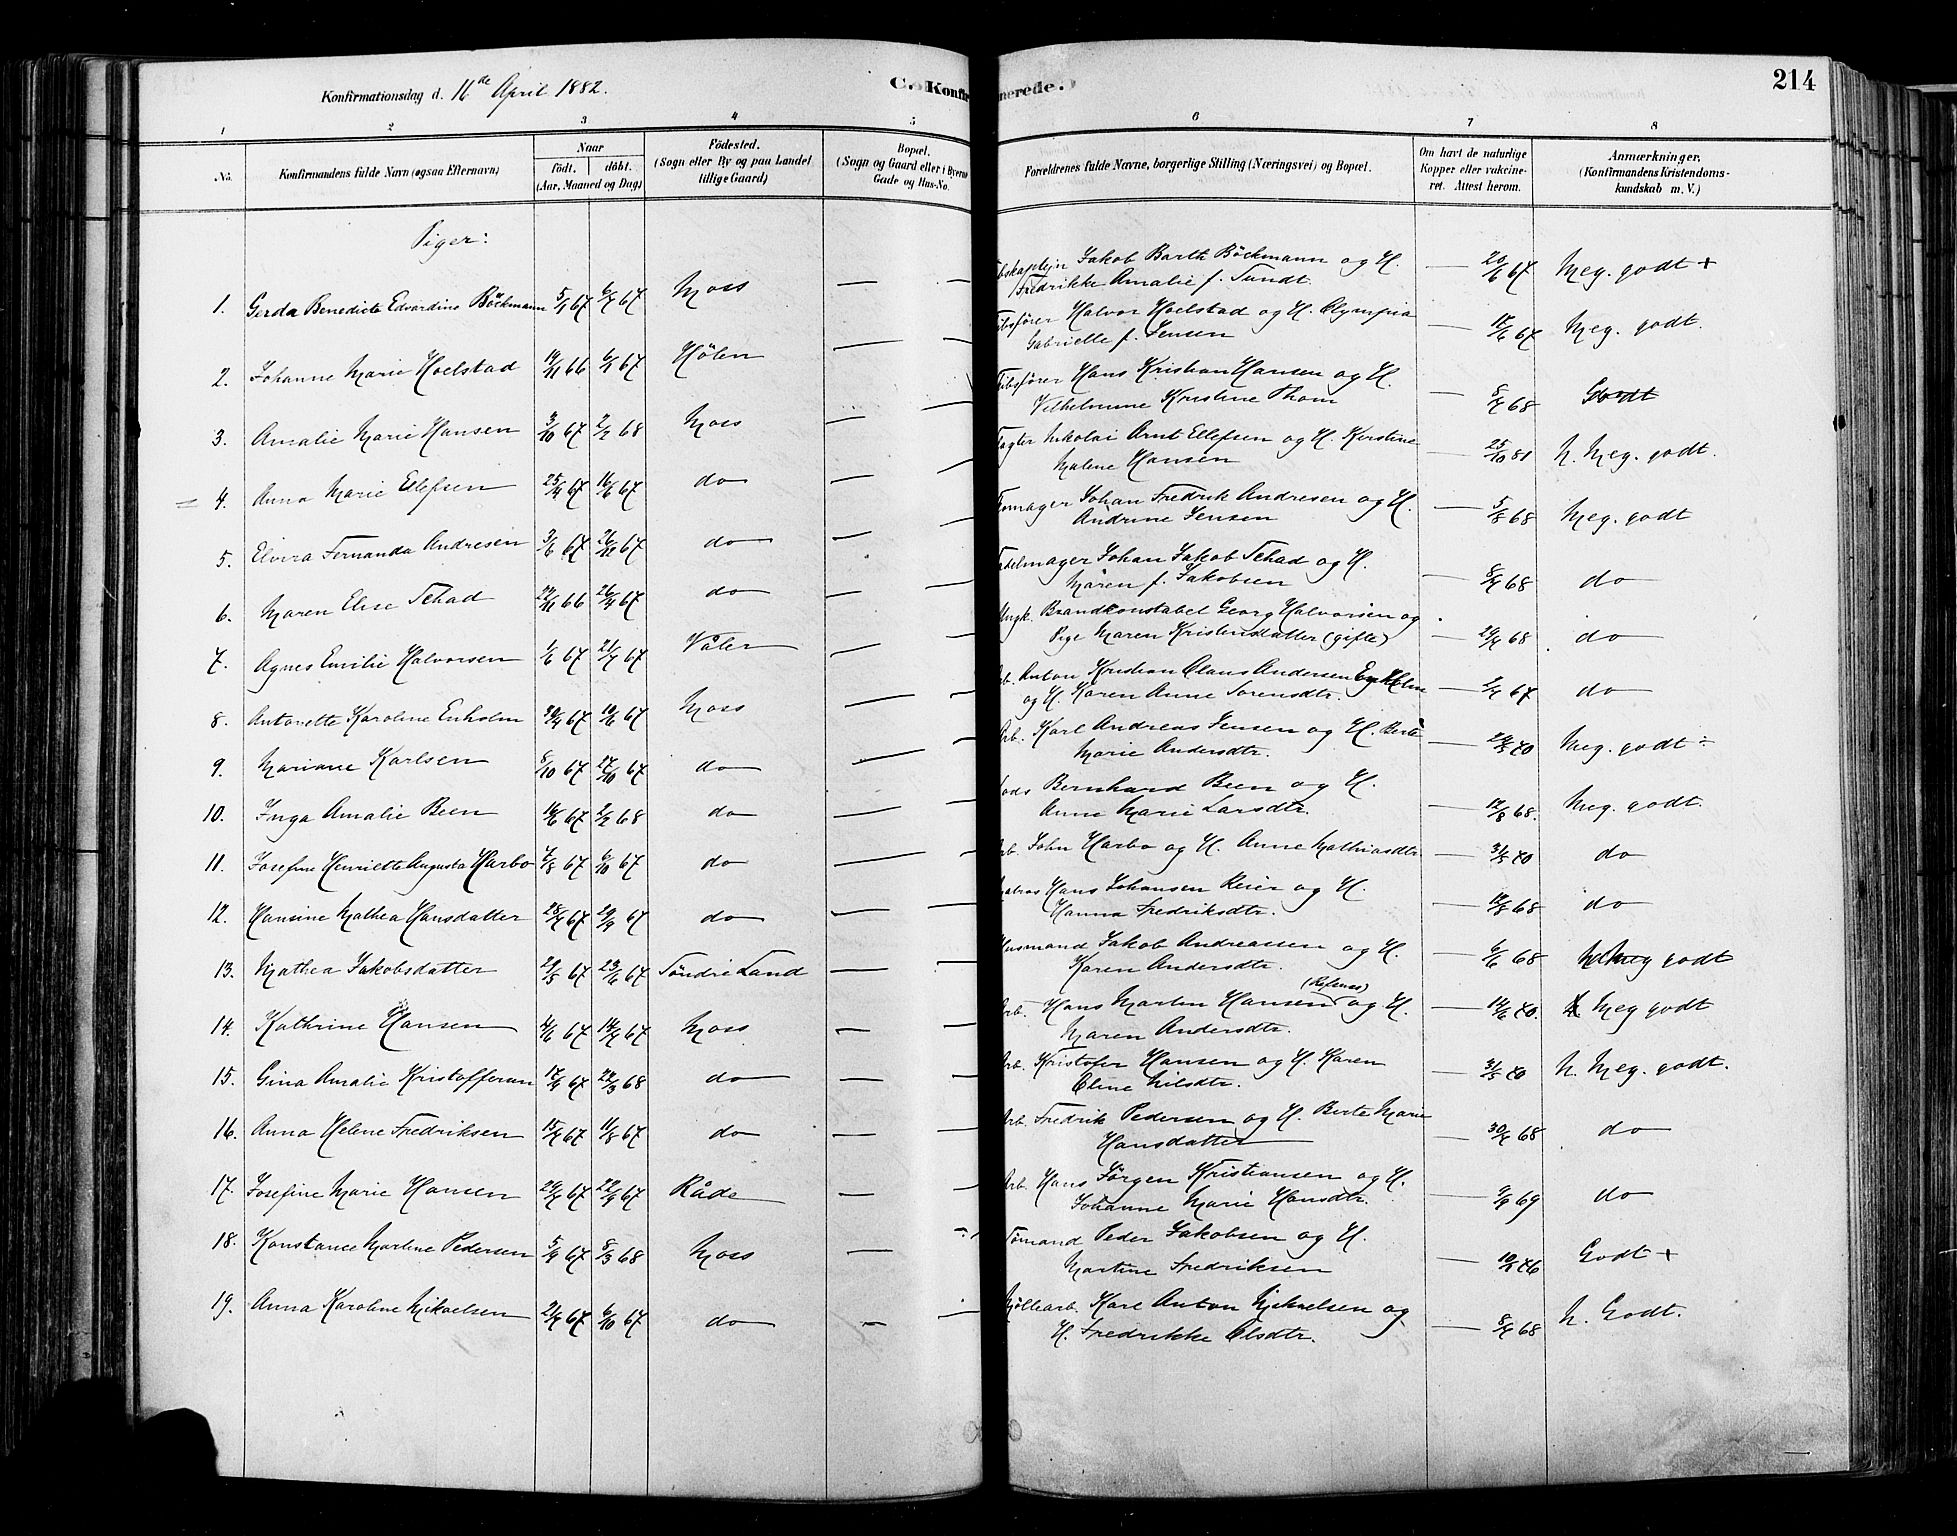 Konfirmationsdag d. 16de April 1882.
C. Konfirmerede.
214
1 2 3 4 5 6 7 8
No.
Konfirmandens fulde Navn (ogsaa Efternavn)
Naar
födt. döbt.
(Aar, Maaned og Dag)
Födested.
(Sogn eller By og paa Landet
tillige Gaard)
Bopæl.
(Sogn og Gaard eller i Byerne
Gade og Hus-No.
Forældrenes fulde Navne, borgerlige Stilling (Næringsvei) og Bopæl.
Om havt de naturlige
Kopper eller vakcine-
ret. Attest herom.
Anmærkninger,
(Konfirmandens Kristendoms-
kundskab m. V.)
Piger:
1. Gerda Benedicte Edvardine Böckmann 5/1 67 67 Moss — Jakob Barth Böckmann og H. — 20/6 67 Meg. godt +
Fredrikke Amalie f. Tundt.
2. Johanne Marie Hoelstad 19/11 66 6/1 67 Hölen — Halvor Hoelstad og H. Olympia — 17/6 67 Meg. godt.
Gabrielle f. Jensen
3. Amalie Marie Hansen 3/10 67 2/2 68 Moss — Hans Kristian Hansen og H. — 68 Godt
Vilhelmine Kristine Thom
4. Anna Marie Ellefsen 25/4 67 16/6 67 do — Nikolai Arnt Ellefsen og H. Kirstine — 25/10 81 N. Meg. godt.
Malene Hansen
5. Elvira Fernanda Andresen 3/6 67 67 do — Johan Fredrik Andresen og H. — 5/8 68 Meg. godt
Andrine Jensen
6. Maren Elise Schad 66 67 do — Johan Jakob Schad og H. — 68 do
Maren f. Jakobsen
7. Agnes Emilie Halvorsen 1/6 67 21/7 67 Våler — Ungk. Brandkonstabel Georg Halvorsen og — 68 do
Pige Maren Kristensdatter (gifte)
8. Antonette Karoline Enholm 67 10/6 67 Moss — Arb. Anton Kristian Claus Andersen Enholm — 67 do
og H. Karen Anne Sorensdtr.
9. Mariane Karlsen 8/10 67 27/10 67 do — Arb. Karl Andreas Jensen og H. Berte — 70 Meg. godt ÷
Marie Andersdtr.
10. Inga Amalie Been 16/6 67 2/2 68 do — Bernhard Been og H. — 12/8 68. Meg. godt.
Anne Marie Larsdtr.
11. Josefine Henriette Augusta Harbo 67 6/10 67 do — Arb. John Harbo og H. Anne Mathiasdtr — 31/5 70 do
12. Hansine Mathea Hansdatter 28/7 67 29/9 67 do — Matros Hans Johansen Reier og H. — 68 do
Hanna Fredriksdtr.
13. Mathea Jakobsdatter 29/5 67 23/6 67 Söndre Land — Husmand Jakob Andreassen og H. — 6/6 68 Meg godt
Karen Andersdtr.
14. Kathrine Hansen 67 14/7 67 Moss — Arb. Hans Martin Hansen (Refsnes) og H. — 14/6 70. Meg godt
Maren Andersdtr.
15. Gina Amalie Kristoffersen 67 68 do — Arb. Kristofer Hansen og H. Karen — 31/5 70 N. Meg. godt.
Oline Nilsdtr.
16. Anna Helene Fredriksen 67 11/8 67 do — Arb. Fredrik Pedersen og H. Berte Marie — 68 do
Hansdatter
17. Josefine Marie Hansen 67 22/9 67 Råde — Arb. Hans Jörgen Kristiansen og H. — 69 do
Johanne Marie Hansdtr.
18. Konstance Martine Pedersen 67 8/3 68 Moss — Peder Jakobsen og H. — 76 Godt +
Martine Fredriksen
19. Anna Karoline Mikaelsen 21/7 67 6/10 67 do — Möllearb. Karl Anton Mikaelsen og — 68 N. Godt.
H. Fredrikke Olsdtr.